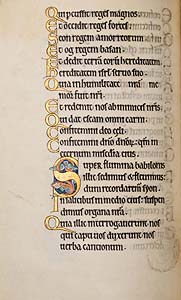 Qui percussit reges magnos.
Et occidit reges fortes.
Seon regem amorreorum
Et og regem basan
Et dedit terrā eorū hereditatē
Hereditatem isrl servo suo
Quia in humilitate nr̄a me
mor fuit nr̄i.
Et redemit nos ab inimicis nr̄is
Qui dat escam omni carni
Confitemini deo celi
Confitemini dn̄o dn̄orum
Super flumina babilonis
illic sedimus et flevimus
dum recordaremur syon.
In salicibus in medio eius sus
pendimus organa nr̄a.
Quia illic interrogaverunt nos
qui captivos duxerunt nos
verba cantionum.